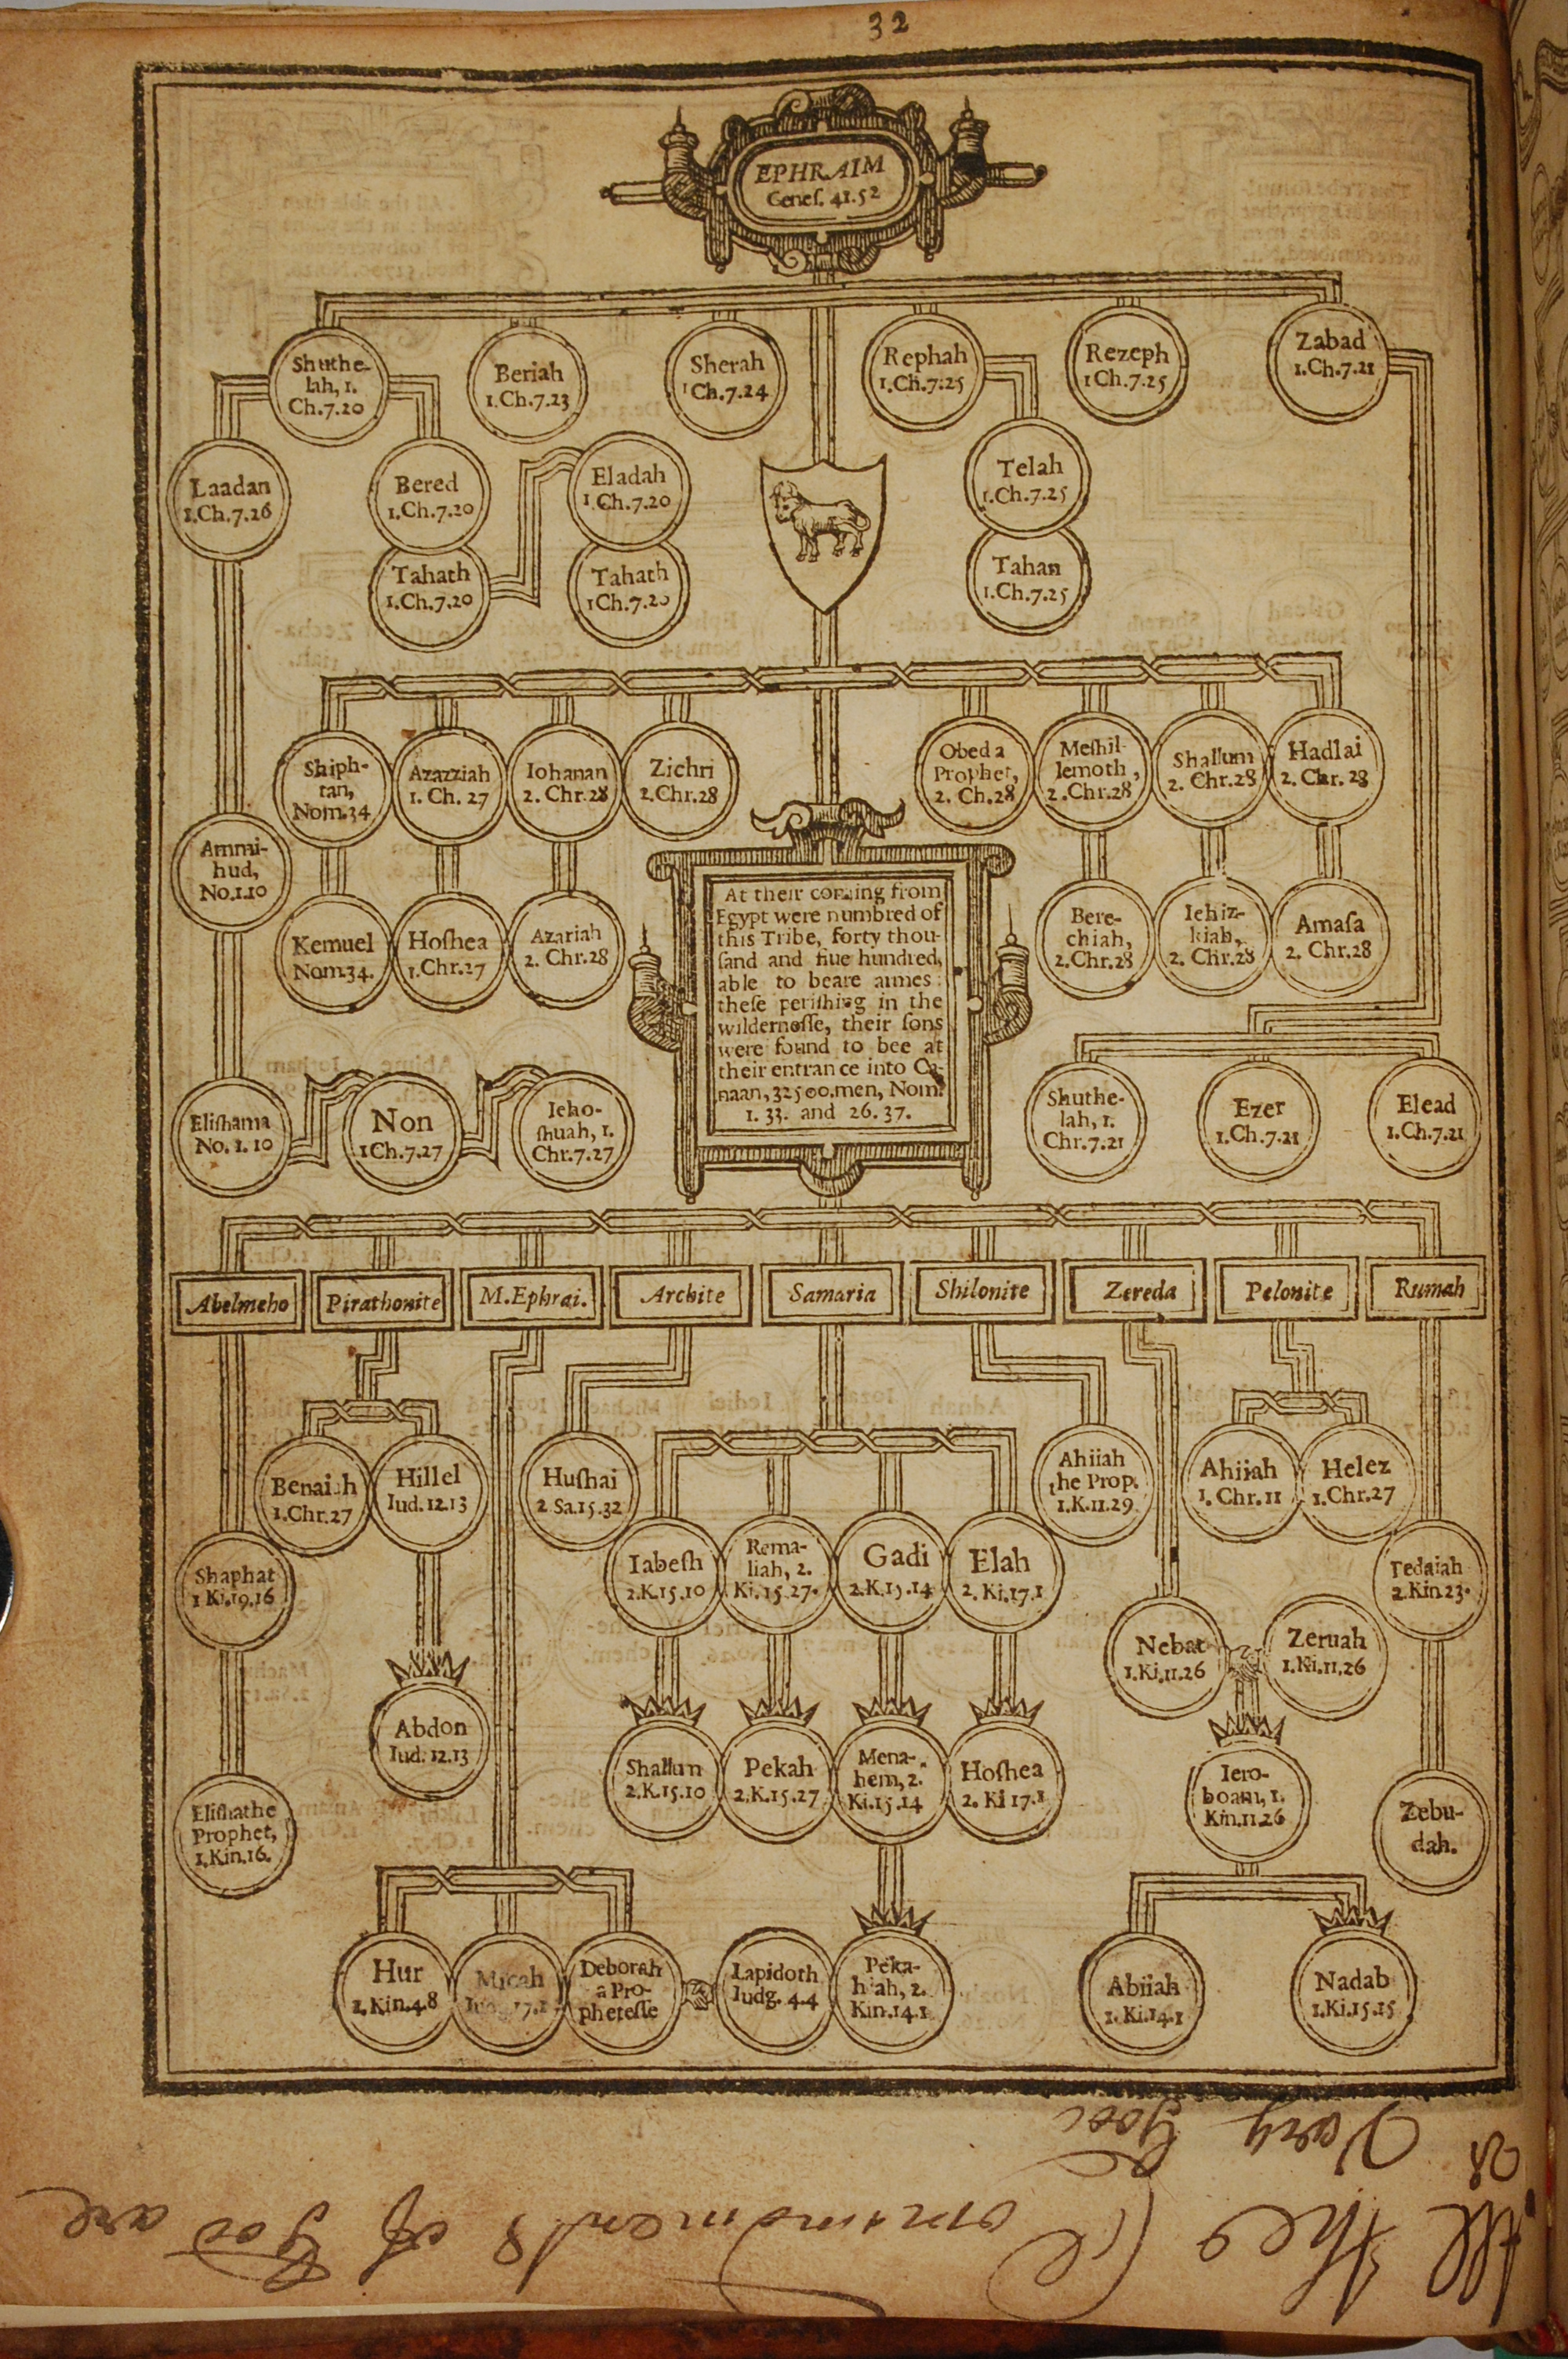 32
EPHRAIM
Geneſ. 41.52
Shuthe-
lah, 1.
Ch.7.20
Beriah
1.Ch.7.23
Sherah
1Ch.7.24
Rephah
1.Ch.7.25
Rezeph
1Ch.7.25
Zabad
1.Ch.7.21
Laadan
1.Ch.7.26
Bered
1.Ch.7.20
Eladah
1.Ch.7.20
Telah
1.Ch.7.25
Tahath
1.Ch.7.20
Tahath
1Ch.7.20
Tahan
1.Ch.7.25
Shiph-
tan,
Nom.34
Azazziah
1. Ch. 27
Iohanan
2. Chr.28
Zichri
2.Chr.28
Obed a
Prophet,
2. Ch.28
Meſhil-
lemoth,
2.Chr.28
Shallum
2. Chr.28
Hadlai
2. Chr. 28
Ammi-
hud,
No.1.10
Kemuel
Nom.34.
Hoſhea
1.Chr.27
Azariah
2. Chr.28
Bere-
chiah,
2.Chr.28
Iehiz-
kiah,
2. Chr.28
Amaſa
2. Chr.28
At their coming from
Egypt were numbred of
this Tribe, forty thou-
ſand and fiue hundred,
able to beare armes:
theſe periſhing in the
wilderneſſe, their ſons
were found to bee at
their entrance into Ca-
naan, 32500.men, Nom.
1. 33. and 26. 37.
Eliſhama
No. 1. 10
Non
1Ch.7.27
Ieho-
ſhuah, 1.
Chr.7.27
Shuthe-
lah, 1.
Chr.7.21
Ezer
1.Ch.7.21
Elead
1.Ch.7.21
Abelmeho
Pirathonite
M.Ephrai.
Archite
Samaria
Shilonite
Zereda
Pelonite
Rumah
Benaiah
1.Chr.27
Hillel
Iud.12.13
Huſhai
2 Sa.15.32
Ahiiah
the Prop.
1.K.11.29
Ahiiah
1. Chr.11
Helez
1.Chr.27
Shaphat
1 Ki.19.16
Iabeſh
2.K.15.10
Rema-
liah, 2.
Ki.15.27.
Gadi
2.K.15.14
Elah
2. Ki.17.1
Nebat
1.Ki.11.26
Zeruah
1.Ki.11.26
Pedaiah
2.Kin.23.
Abdon
Iud.12.13
Shallun
2.K.15.10
Pekah
2.K.15.27
Mena-
hem, 2.
Ki.15.14
Hoſhea
2. Ki 17.1
Iero-
boam, 1.
Kin.11.26
Zebu-
dah.
Eliſha the
Prophet,
1.Kin.16.
Hur
1.Kin.4.8
Micah
17.1
Deborah
a Pro-
pheteſſe
Lapidoth
Iudg. 4.4
Peka-
hiah, 2.
Kin.14.1
Abiiah
1.Ki.14.1
Nadab
1.Ki.15.15
All the Comandments of God are
Very Good